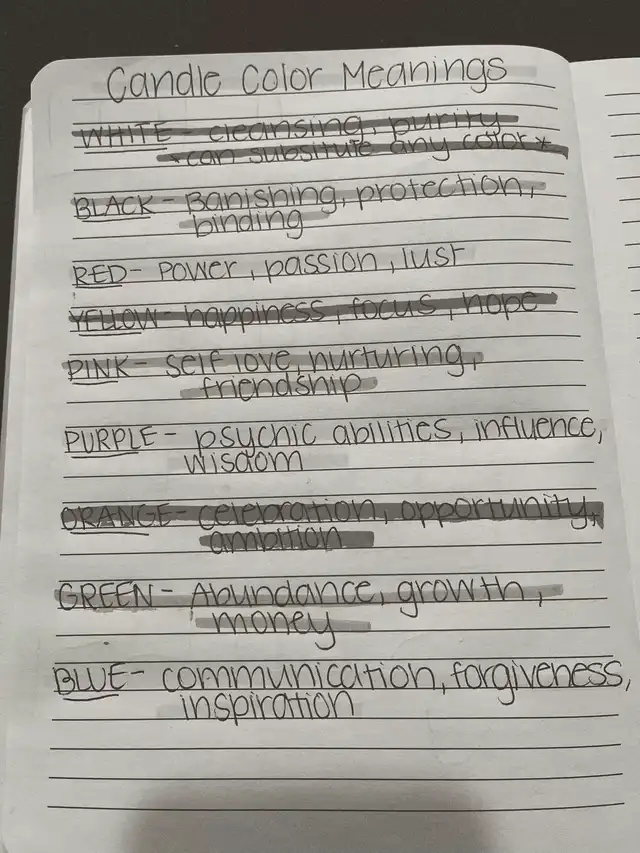 Candle Color Meanings
WHITE - cleansing, purity
*can subsitute any color*
BLACK - Banishing, protection,
binding
RED - Power, passion, lust
YELLOW - happiness, focus, hope
PINK - self love, nurturing,
friendship
PURPLE - psychic abilities, influence,
wisdom
ORANGE - celebration, opportunity,
ambition
GREEN - Abundance, growth,
money
BLUE - communication, forgiveness,
inspiration